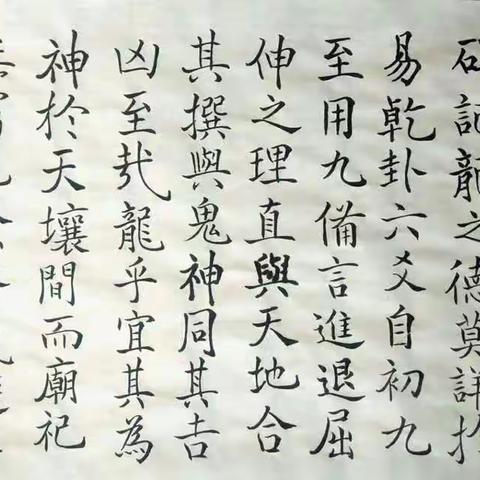 記龍之德莫詳於
易乾卦六爻自初九
至用九備言進退屈
伸之理直與天地合
其撰與鬼神同其吉
凶至哉龍乎宜其為
神於天壤間而廟祀